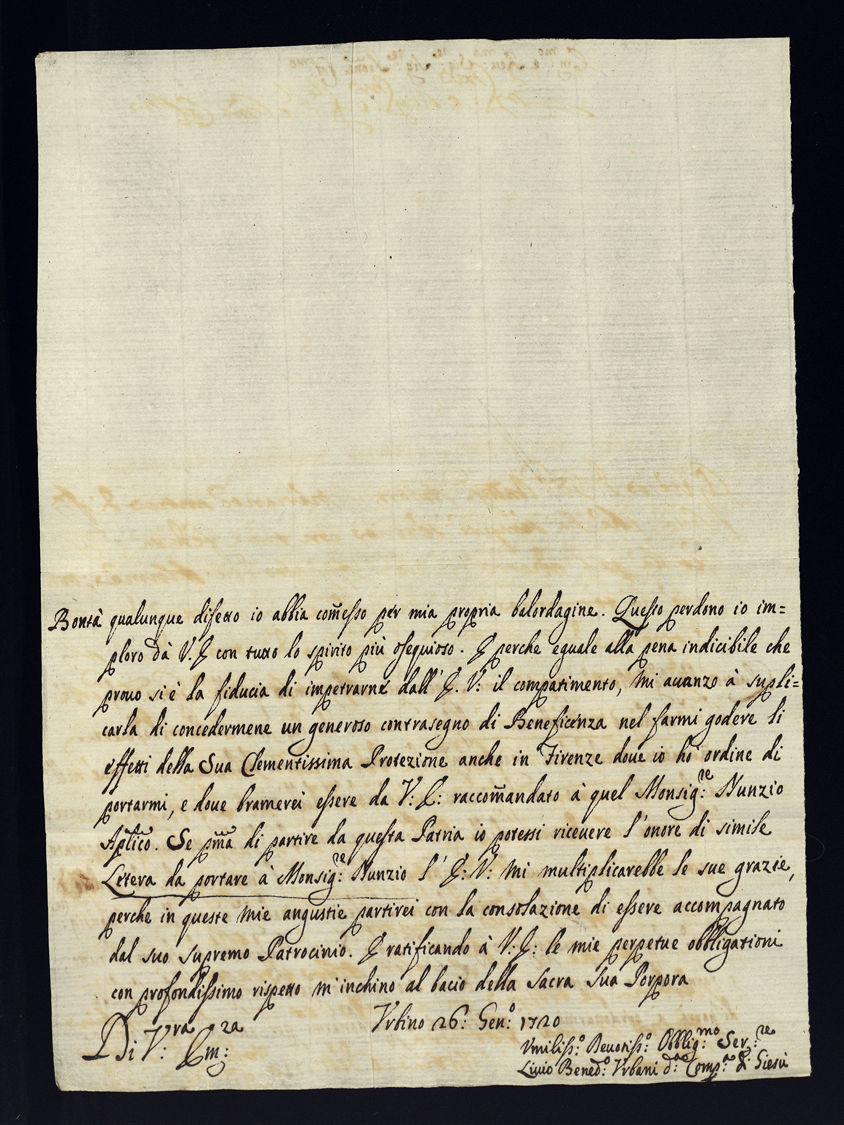 Bontà qualunque difetto io abbia com̃esso per mia propria balordagine. Questo perdono io im=
ploro dà V. E con tutto lo spirito più osequioso. E perche eguale alla pena indicibile che
prouo si è la fiducia di impetrarne dall' E. V: il compatimento, mi auanzo à supli=
carla di concedermene un generoso contrasegno di Beneficenza nel farmi godere li
effetti della Sua Clementissima Protezione anche in Firenze doue io ho ordine di
portarmi, e doue bramerei essere da V: E: raccom̃andato à quel Monsig:re Nunzio
Aplico. Se pm̃a di partire da questa Patria io potessi riceuere l'onore di simile
Letera da portare à Monsig:re Nunzio l' E: V: mi multiplicarebbe le sue grazie,
perche in queste mie angustie partirei con la consolazione di essere accompagnato
dal suo supremo Patrocinio. E ratificando à V: E: le mie perpetue obbligationi
con profondissimo rispetto m'inchino al bacio della Sacra Sua Porpora
Di V:ra Em:za
Vrbino 26: Gen:o 1720
Vmiliss:o Deuotiss:o Obblig:mo Ser:re
Liuio Bened:o Vrbani d:a Comp:a di Giesù